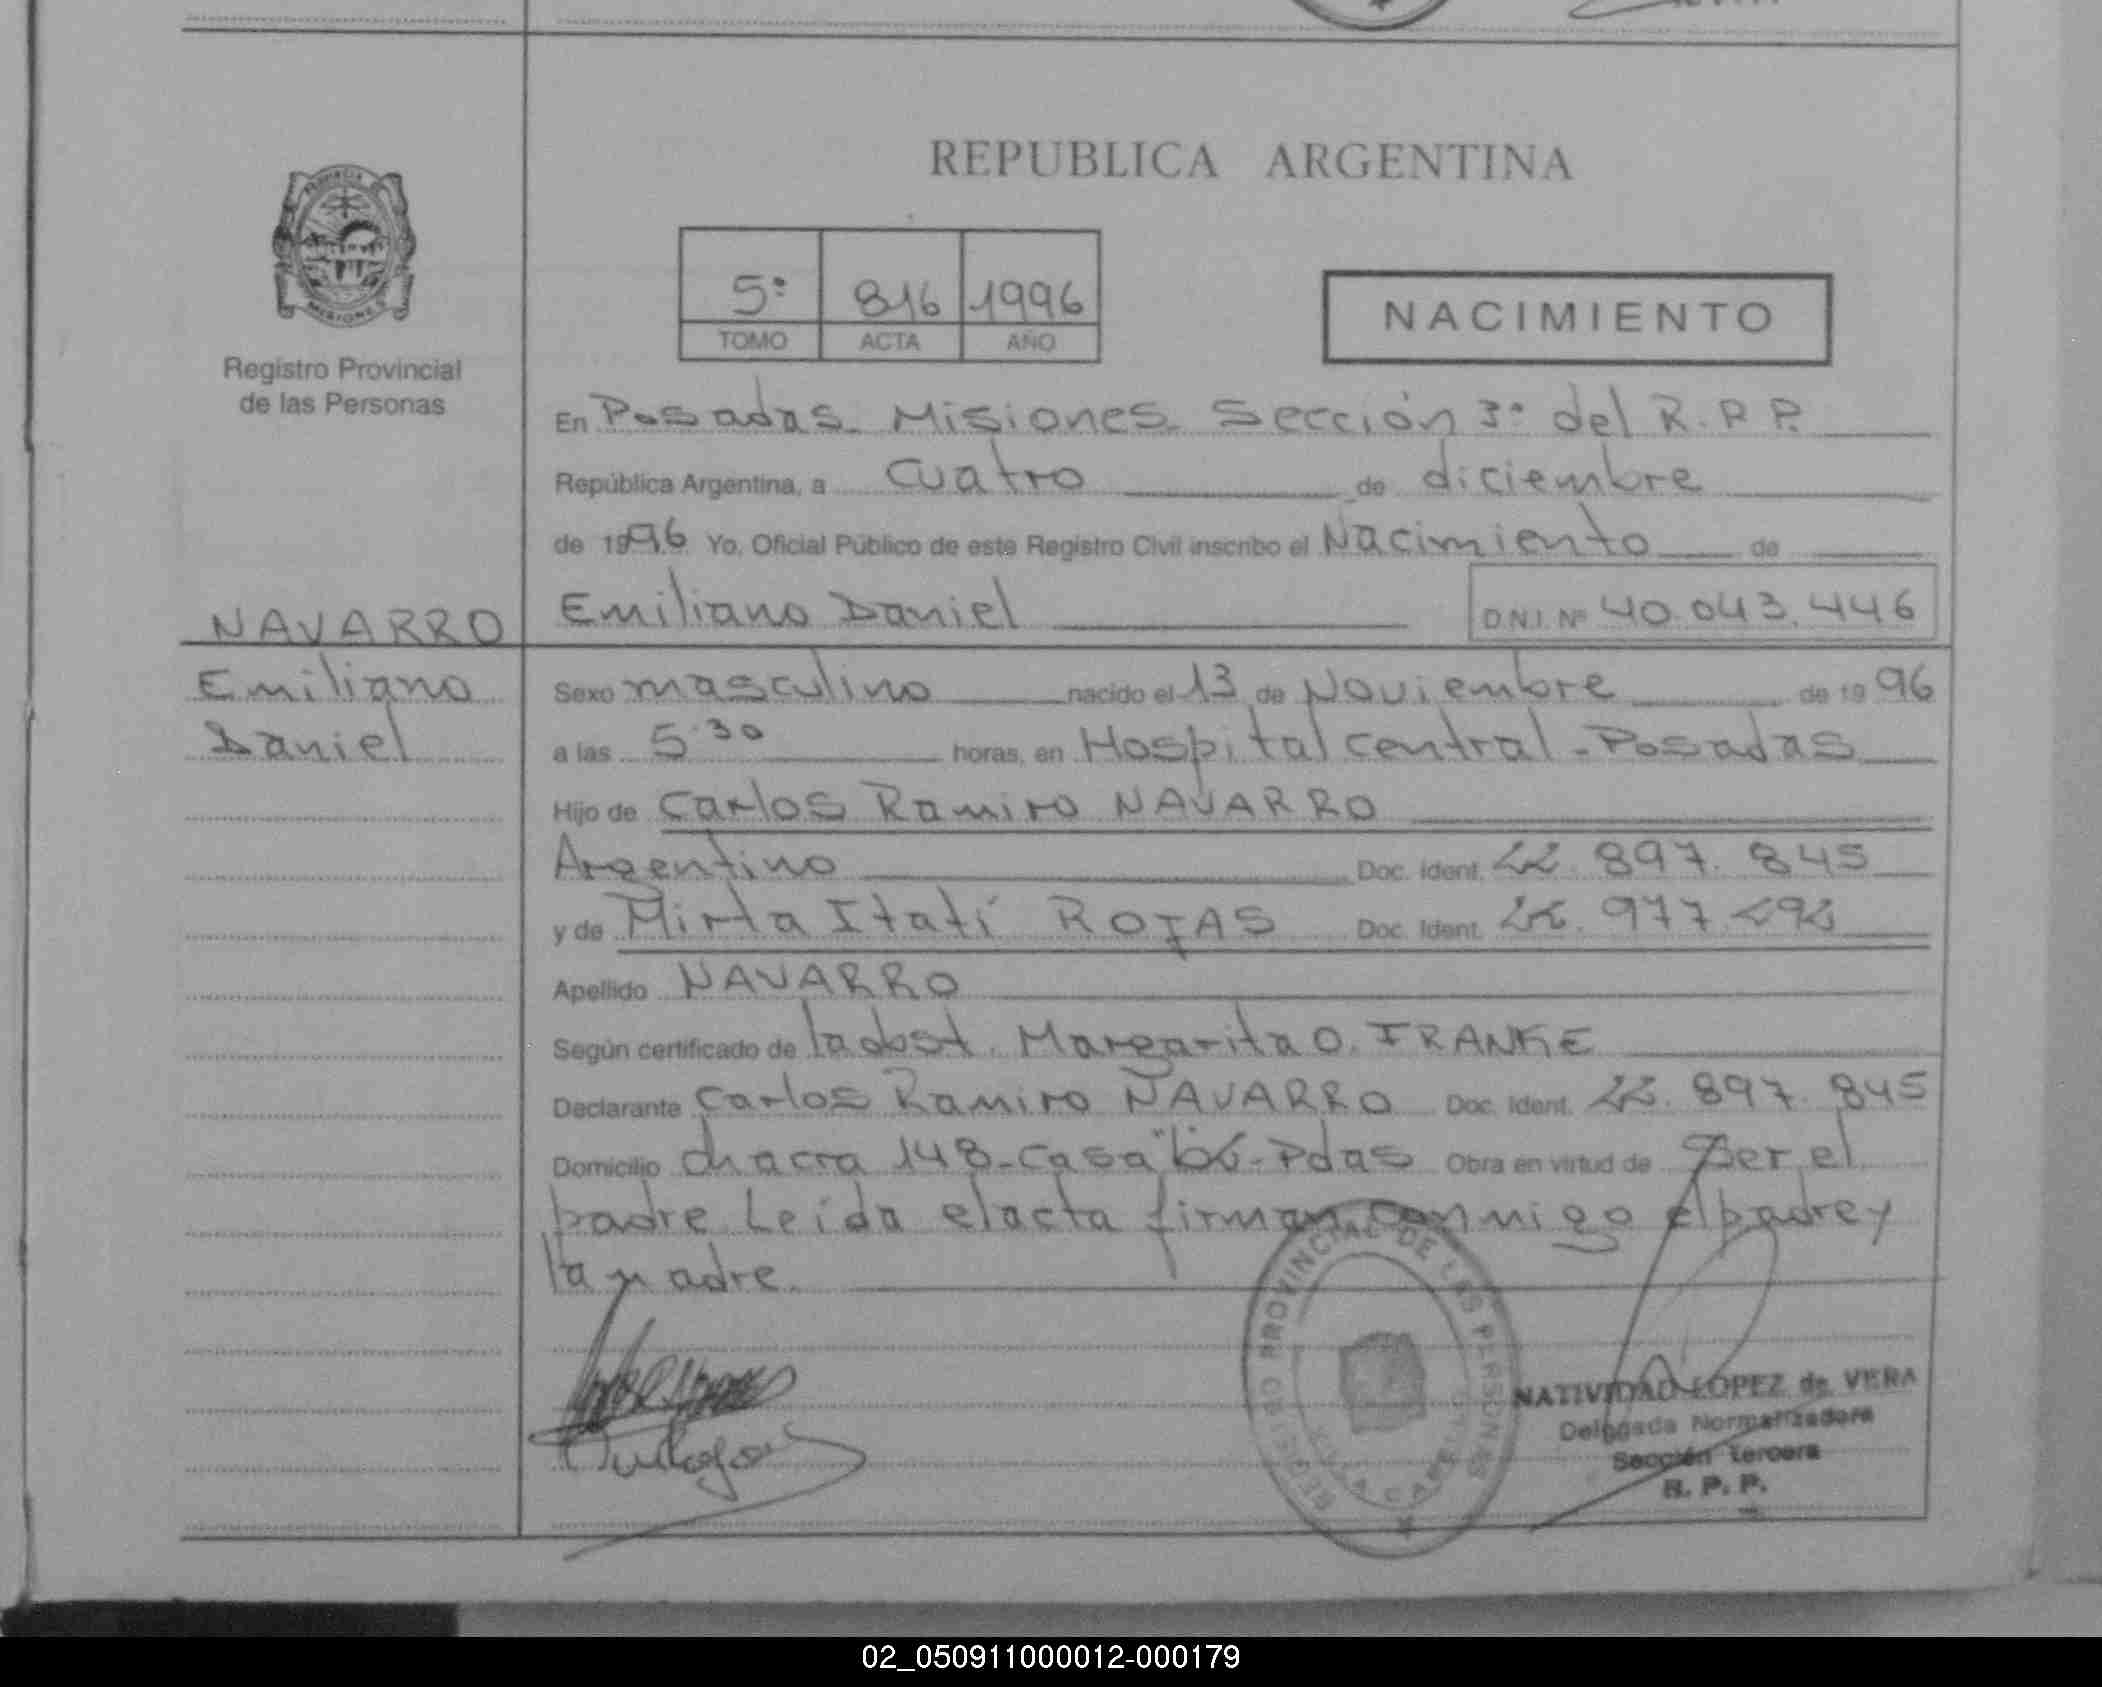 REPUBLICA ARGENTINA
5º 816 1996
TOMO ACTA AÑO
NACIMIENTO
PROVINCIA
MISIONES
Registro Provincial
de las Personas
En Posadas. Misiones. Sección 3º del R.P.P.
República Argentina, a cuatro de diciembre
de 1996 Yo, Oficial Público de este Registro Civil inscribo el Nacimiento de
NAVARRO Emiliano Daniel D.N.I. Nº 40.043.446
Emiliano Sexo masculino nacido el 13 de Noviembre de 1996
Daniel a las 5.30 horas, en Hospital central - Posadas
Hijo de Carlos Ramiro NAVARRO
Argentino Doc. Ident. 22.897.845
y de Mirta Itatí ROJAS Doc. Ident. 22.977.292
Apellido NAVARRO
Según certificado de la obst. Margarita O. FRANKE
Declarante Carlos Ramiro NAVARRO Doc. Ident. 22.897.845
Domicilio chacra 148 - casa - Pdas Obra en virtud de Ser el
padre Leída el acta firman conmigo el padre y
la madre.
REGISTRO PROVINCIAL DE LAS PERSONAS
NATIVIDAD LOPEZ de VERA
Delegada Normalizadora
Sección tercera
R. P. P.
02_050911000012-000179